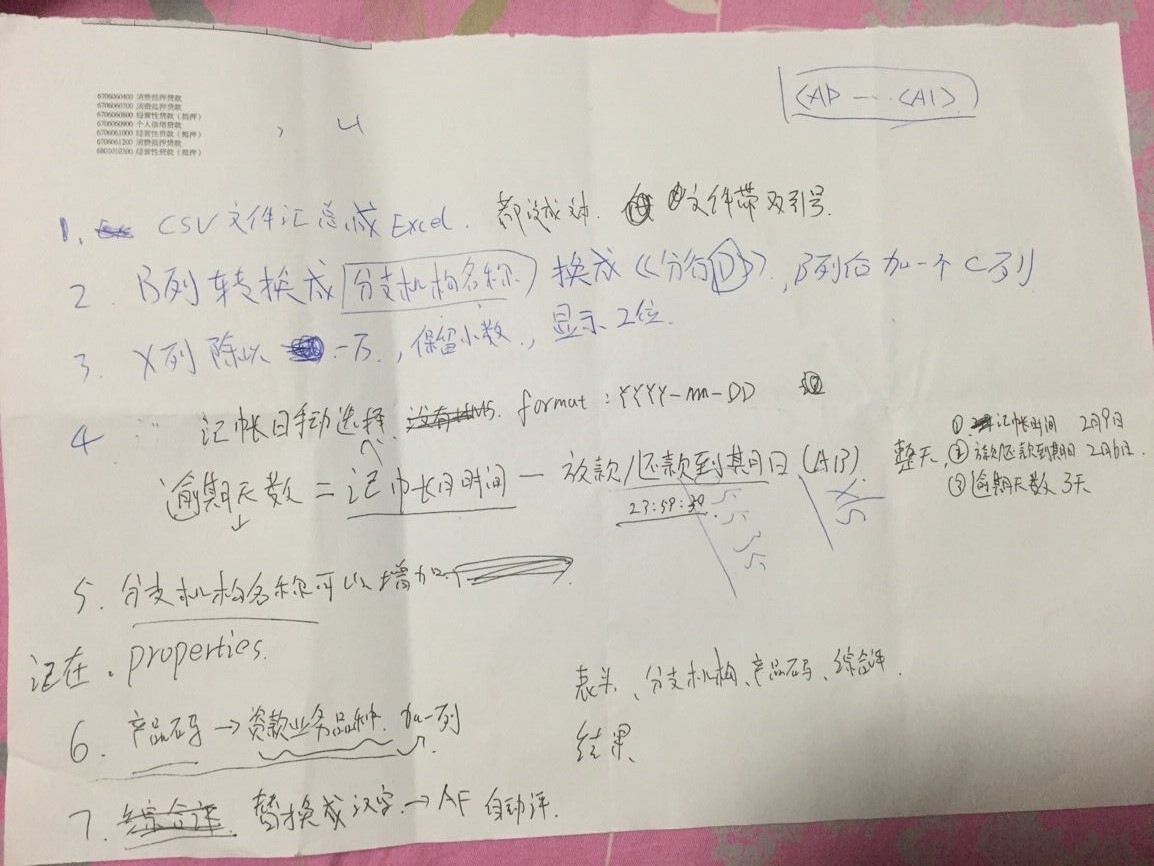 6706060400 消费抵押贷款
6706060700 消费抵押贷款
6706060800 经营性贷款（抵押）
6706060900 个人信用贷款
6706061000 经营性贷款（抵押）
6706061200 消费抵押贷款
6801010300 经营性贷款（抵押）
<A1> --- <A1>
1. CSV 文件汇总成 Excel. 都没成对. 文件带双引号.
2. B列 转换成 分支机构名称 换成《分行①》, B列后加一个C列
3. X列 除以 一万, 保留小数, 显示 2位.
4 记帐日手动选择 format: YYYY-mm-DD
逾期天数 = 记帐日时间 — 放款/还款到期日 (AB) 整天,
23:59:59
① 记帐时间 2月9日
② 放款/还款到期日 2月6日.
③ 逾期天数 3天
5. 分支机构名称可以增加
记在. properties.
表头、分支机构、产品码、综合评.
6. 产品码 → 贷款业务品种. 加一列
结果、
7. 综合评. 替换成汉字 → AF 自动评.